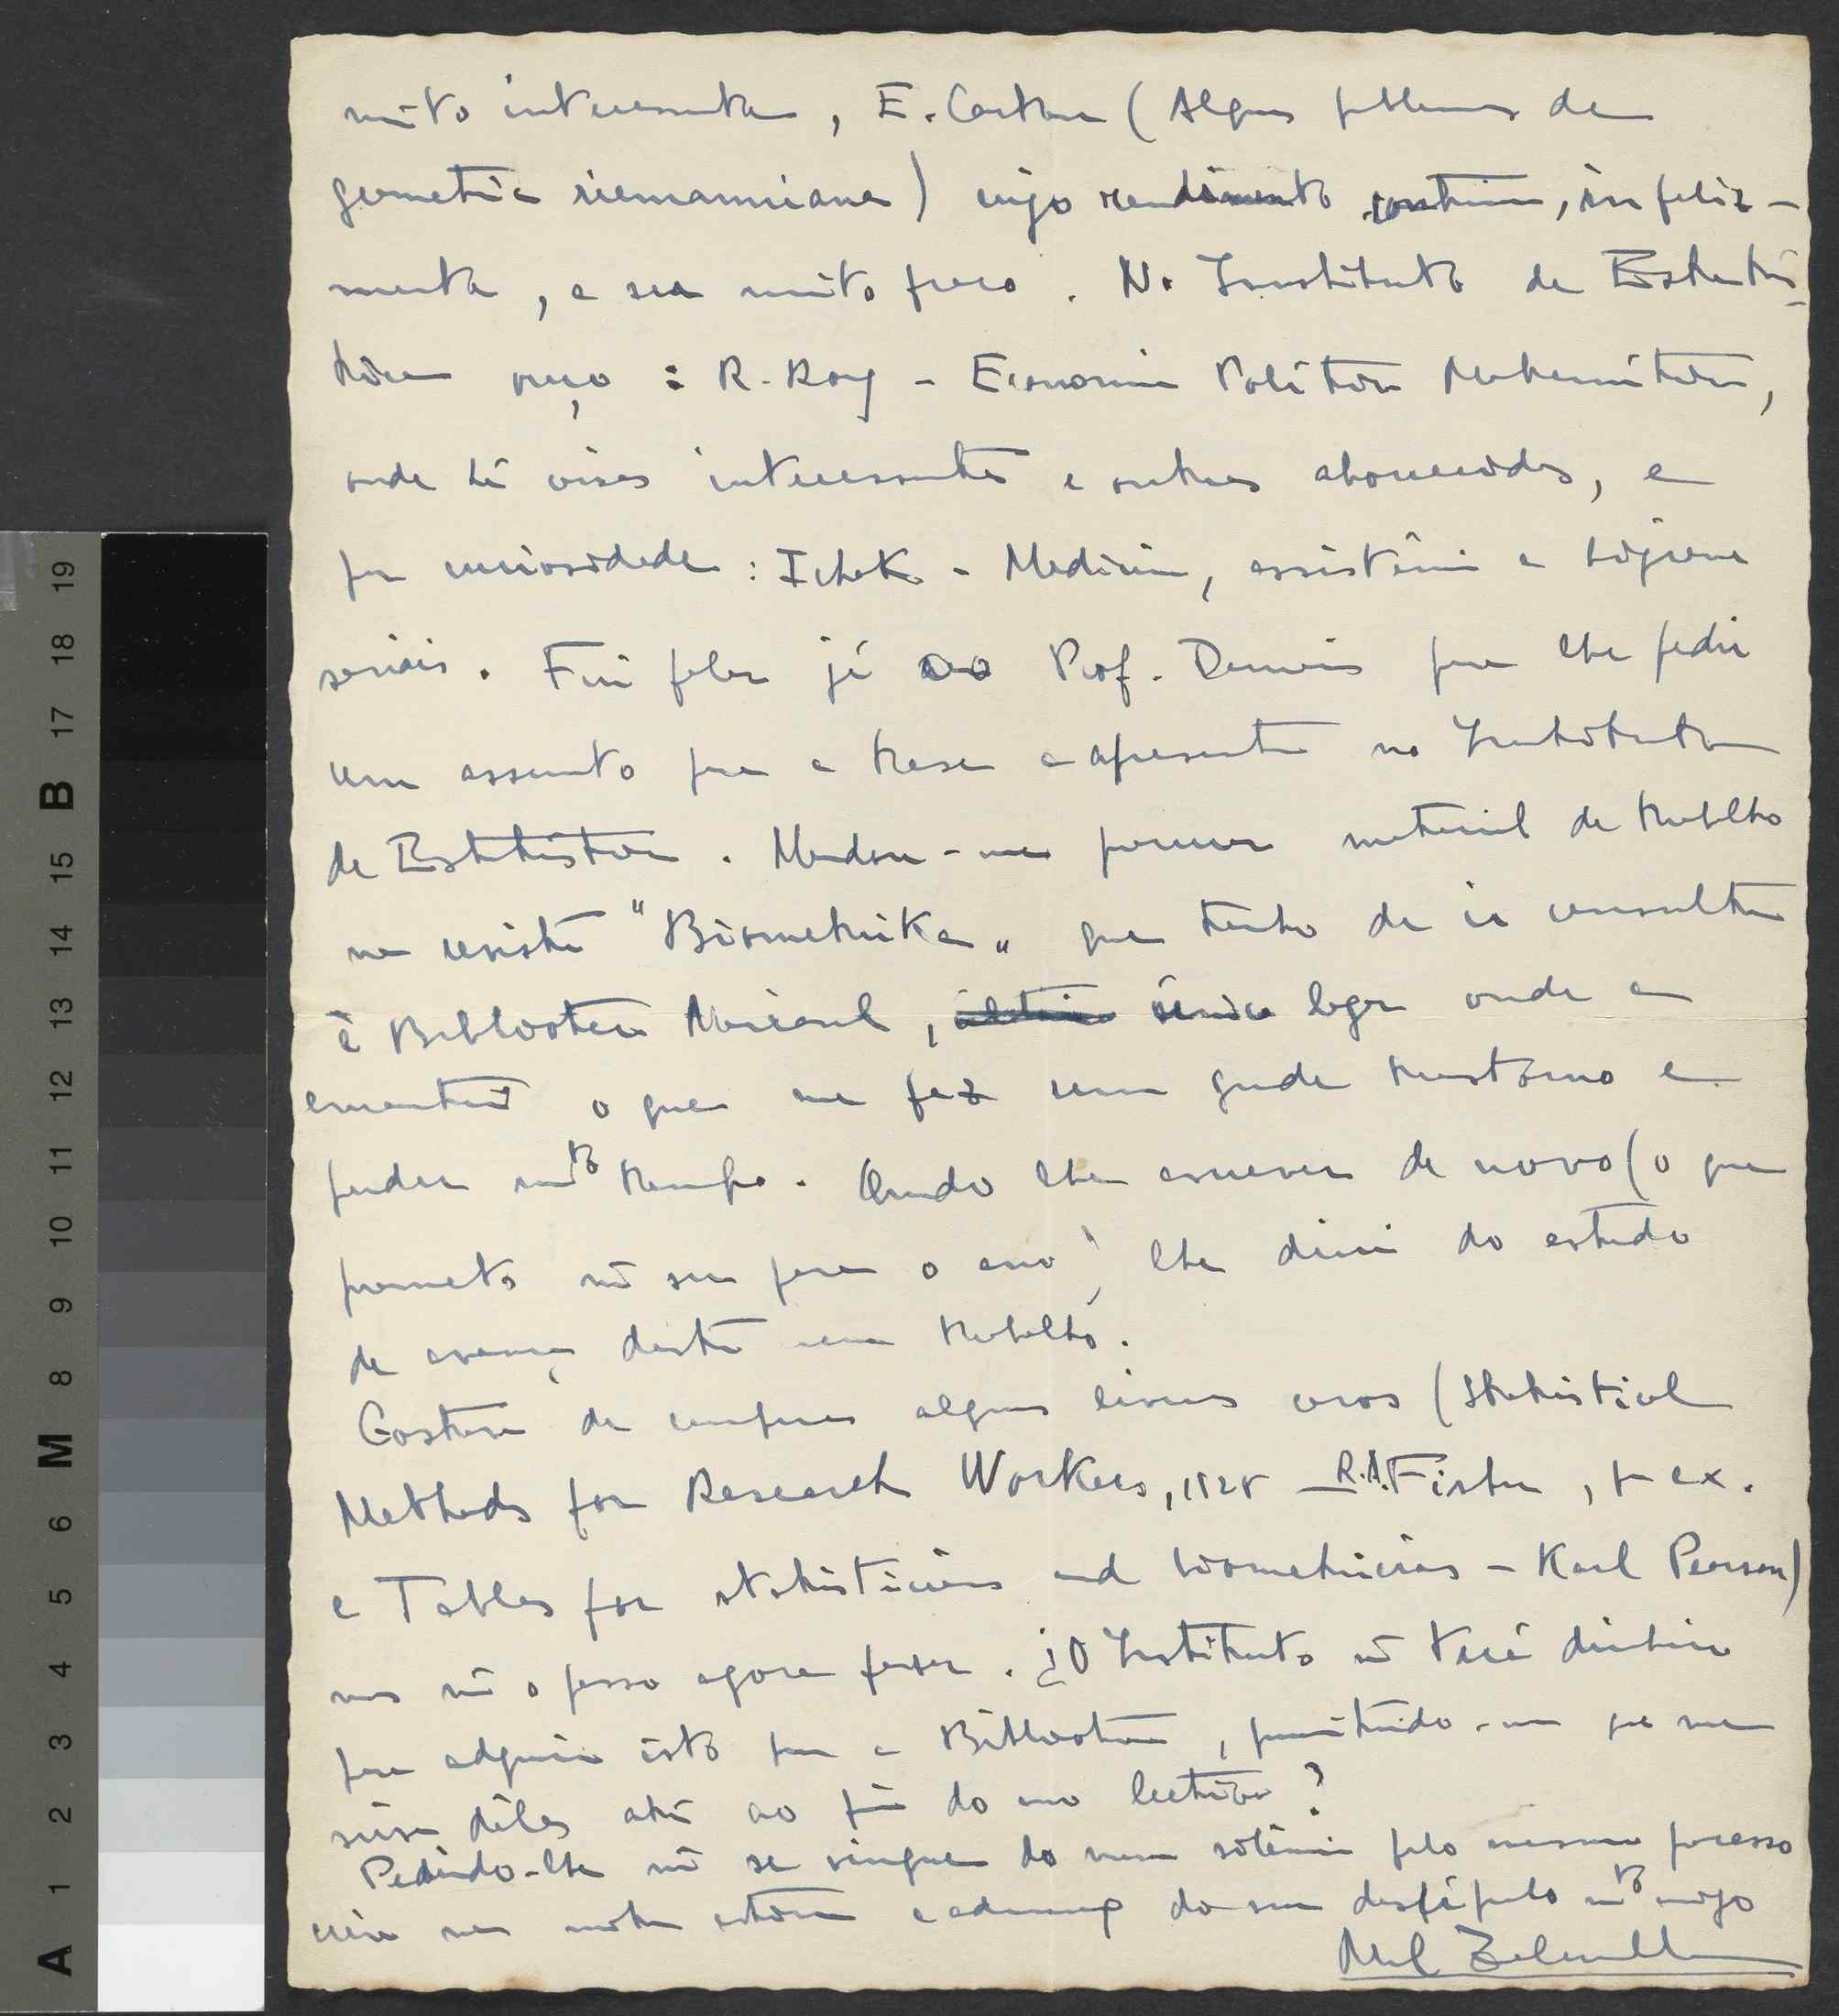 muito interessante, E. Cartan (Alguns problemas de
geometria riemanniana) cujo rendimento continua, infeliz-
mente, a ser muito fraco. No Instituto de Estatís-
tica ouço: R. Roy - Economia Política Matemática,
onde há coisas interessantes e outras aborrecidas, e
por curiosidade: Ichok - Medicina, assistência e higiene
sociais. Fui falar já ao Prof. Darmois para lhe pedir
um assunto para a tese a apresentar no Instituto
de Estatística. Mandou-me procurar material de trabalho
na revista "Biometrika" que tenho de ir consultar
à Biblioteca Nacional, única lugar onde a
encontrei o que me faz um grande transtorno e
perder mto tempo. Quando lhe escrever de novo (o que
prometo não ser para o ano) lhe direi do estado
de avanço deste meu trabalho.
Gostava de comprar alguns livros caros (Statistical
Methods for Research Workers, 1928 - R.A. Fisher, p. ex.
e Tables for statisticians and biometricians - Karl Pearson)
mas não o posso agora fazer. ¿O Instituto não terá dinheiro
para adquirir isto para a Biblioteca, permitindo-me que me
sirva dêles até ao fim do ano lectivo?
Pedindo-lhe não se vingue do meu silêncio pelo mesmo processo
creia na muita estima e admiração do seu discípulo mto amigo